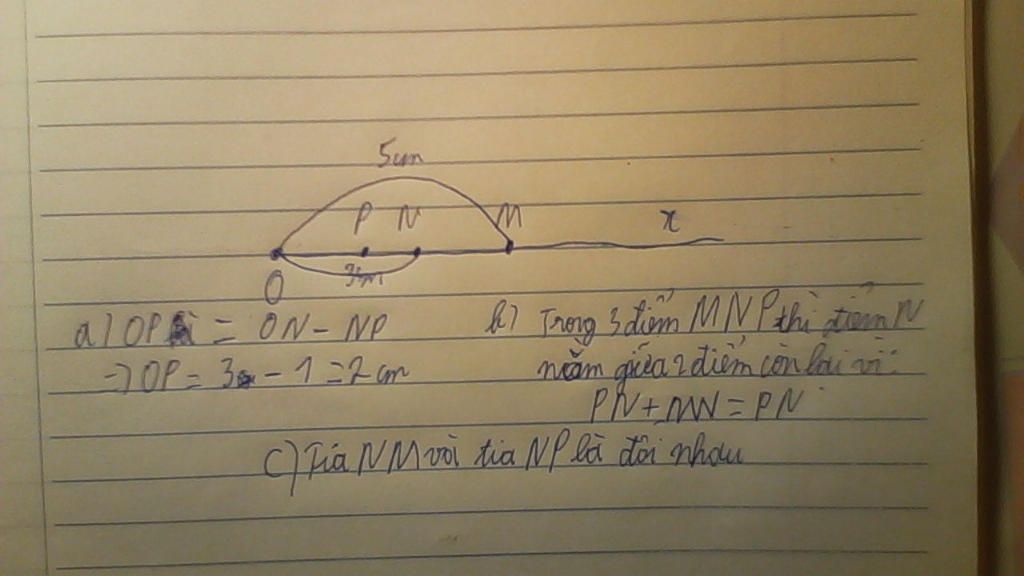 5cm
P N M x
3cm
O
a) OP = ON - NP
=> OP = 3 - 1 = 2 cm
b) Trong 3 điểm MNP thì điểm N
nằm giữa 2 điểm còn lại vì:
PN + MN = PN
c) Tia NM với tia NP là đôi nhau